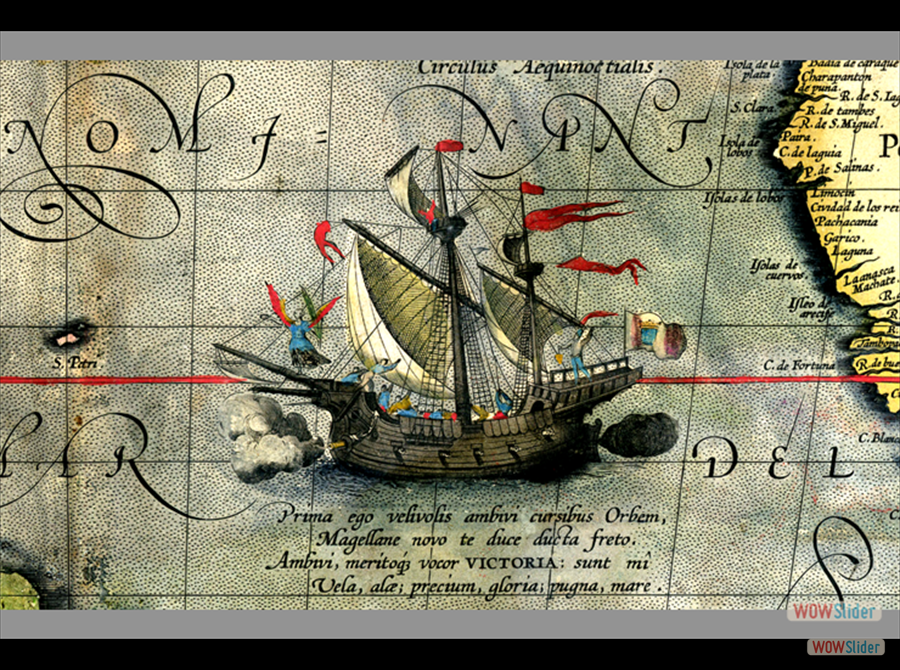 Circulus Aequinoctialis.
NOMI=
NVNT
Isola de la
plata.
Badia de caraque
Charapanton
de puna.
R. de S. Iag
S. Clara.
R. de tambes
R. de S. Miguel.
Isola de
lobos.
Paira.
C. de laguia
P. de Salinas.
Isolas de lobos
Limocin
Cividad de los rei
Pachacania
Garico.
Laguna
Isolas de
cuervos.
Laanasca
Machate.
R.
Isleo de
arecife.
R.
R.
Tambopa
S. Petri
C. de Fortuna
R. de bue
C. Blanc
AR
DEL
Prima ego velivolis ambivi cursibus Orbem,
Magellane novo te duce ducta freto.
Ambivi, meritoq; vocor VICTORIA: sunt mî
Vela, alæ; precium, gloria; pugna, mare.
WOWSlider
WOWSlider